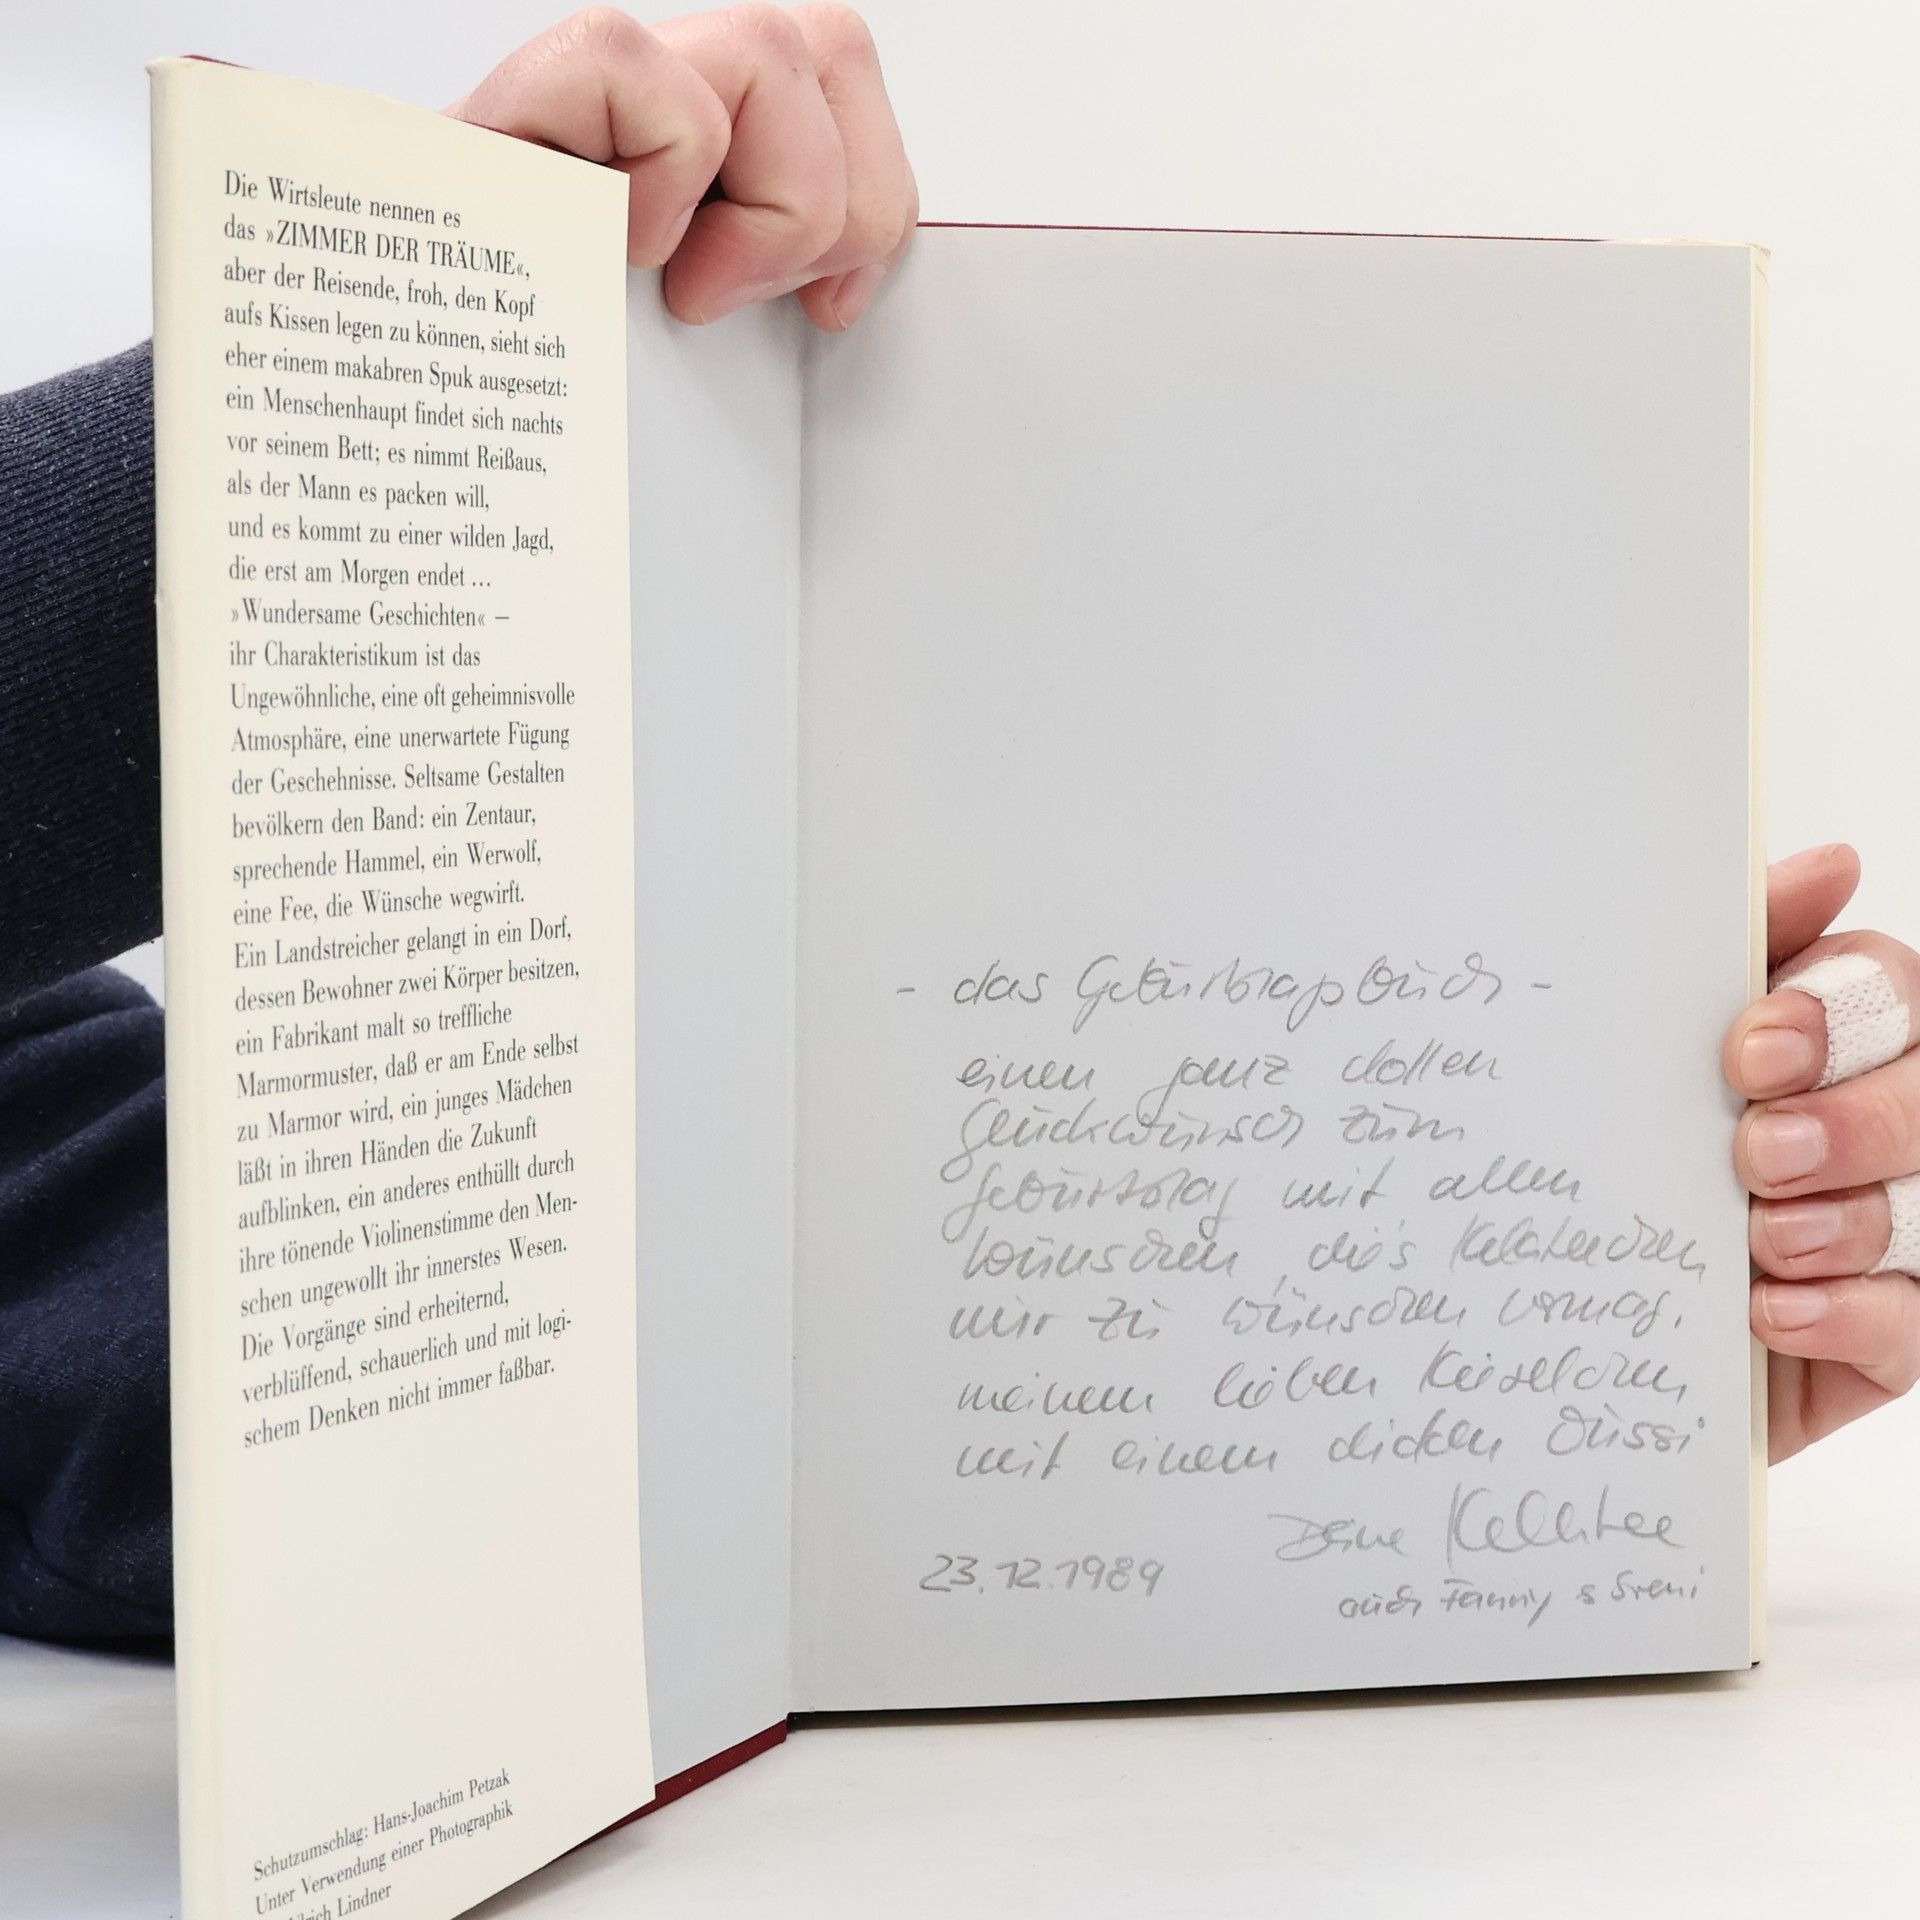 Die Wirtsleute nennen es
das »ZIMMER DER TRÄUME«,
aber der Reisende, froh, den Kopf
aufs Kissen legen zu können, sieht sich
eher einem makabren Spuk ausgesetzt:
ein Menschenhaupt findet sich nachts
vor seinem Bett; es nimmt Reißaus,
als der Mann es packen will,
und es kommt zu einer wilden Jagd,
die erst am Morgen endet ...
»Wundersame Geschichten« –
ihr Charakteristikum ist das
Ungewöhnliche, eine oft geheimnisvolle
Atmosphäre, eine unerwartete Fügung
der Geschehnisse. Seltsame Gestalten
bevölkern den Band: ein Zentaur,
sprechende Hammel, ein Werwolf,
eine Fee, die Wünsche wegwirft.
Ein Landstreicher gelangt in ein Dorf,
dessen Bewohner zwei Körper besitzen,
ein Fabrikant malt so treffliche
Marmormuster, daß er am Ende selbst
zu Marmor wird, ein junges Mädchen
läßt in ihren Händen die Zukunft
aufblinken, ein anderes enthüllt durch
ihre tönende Violinenstimme den Men-
schen ungewollt ihr innerstes Wesen.
Die Vorgänge sind erheiternd,
verblüffend, schauerlich und mit logi-
schem Denken nicht immer faßbar.
Schutzumschlag: Hans-Joachim Petzak
Unter Verwendung einer Photographik
Lindner
- das Geburtstagsbuch -
einen ganz dollen
Glückwunsch zum
Geburtstag mit allen
Wünschen,
mir zu wünschen vermag.
meinem lieben
mit einem dicken Bussi
Deine
23.12.1989
auch Fanny &